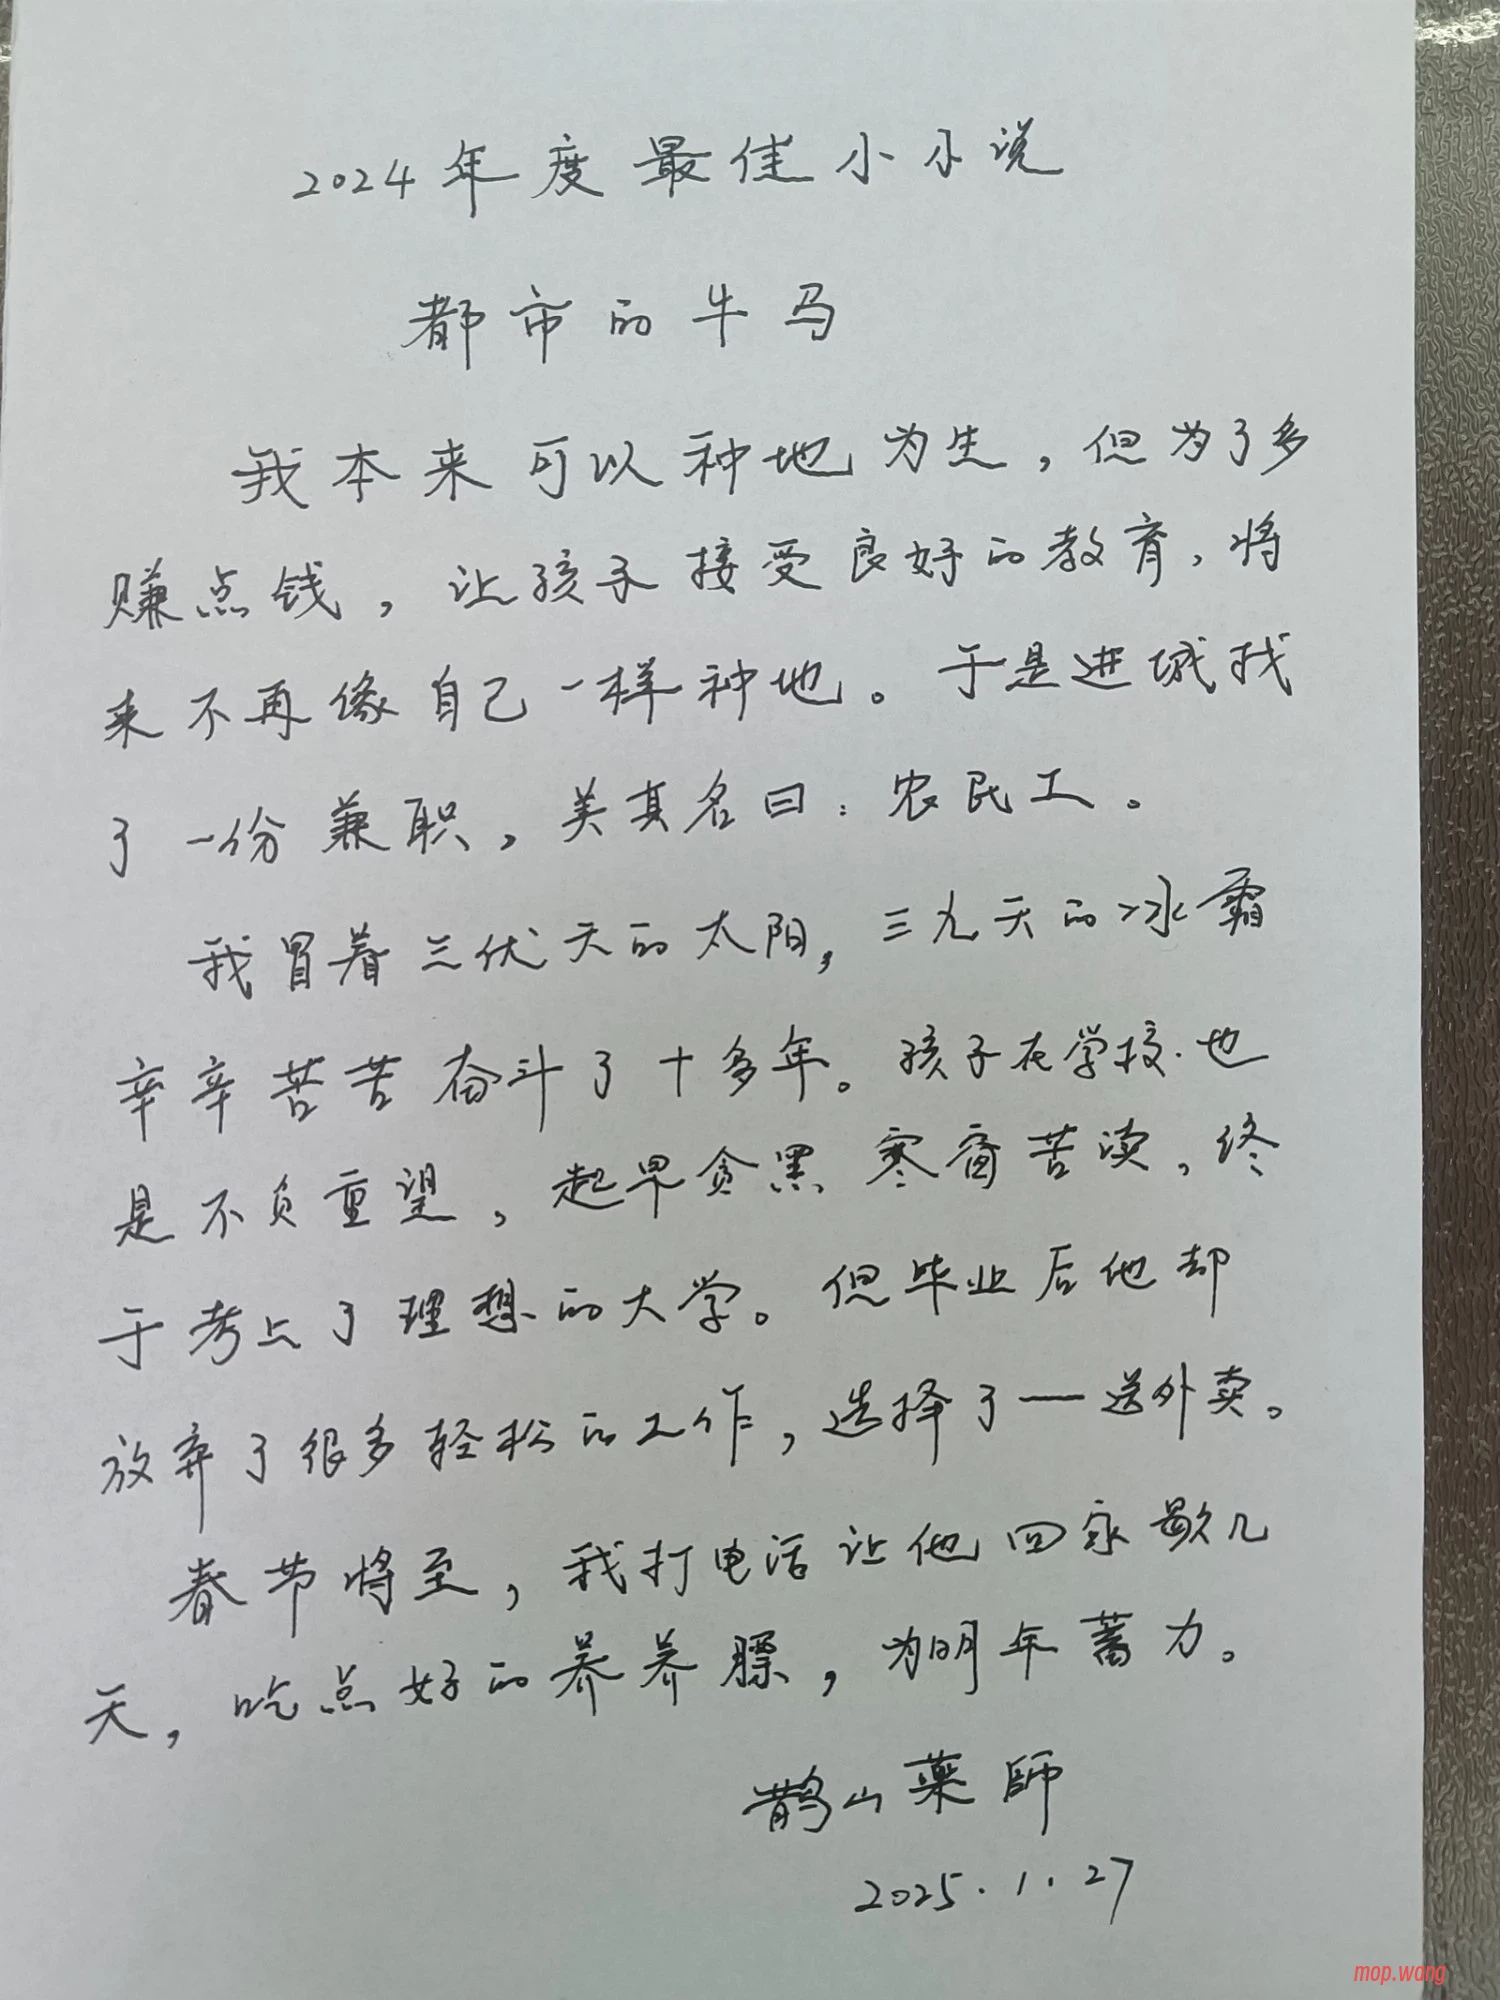 2024年度最佳小小说
都市的牛马
我本来可以种地为生，但为了多
赚点钱，让孩子接受良好的教育，将
来不再像自己一样种地。于是进城找
了一份兼职，美其名曰：农民工。
我冒着三伏天的太阳，三九天的冰霜
辛辛苦苦奋斗了十多年。孩子在学校也
是不负重望，起早贪黑寒窗苦读，终
于考上了理想的大学。但毕业后他却
放弃了很多轻松的工作，选择了一送外卖。
春节将至，我打电话让他回家歇几
天，吃点好的养养膘，为明年蓄力。
鹊山藥師
2025.1.27
mop.wang